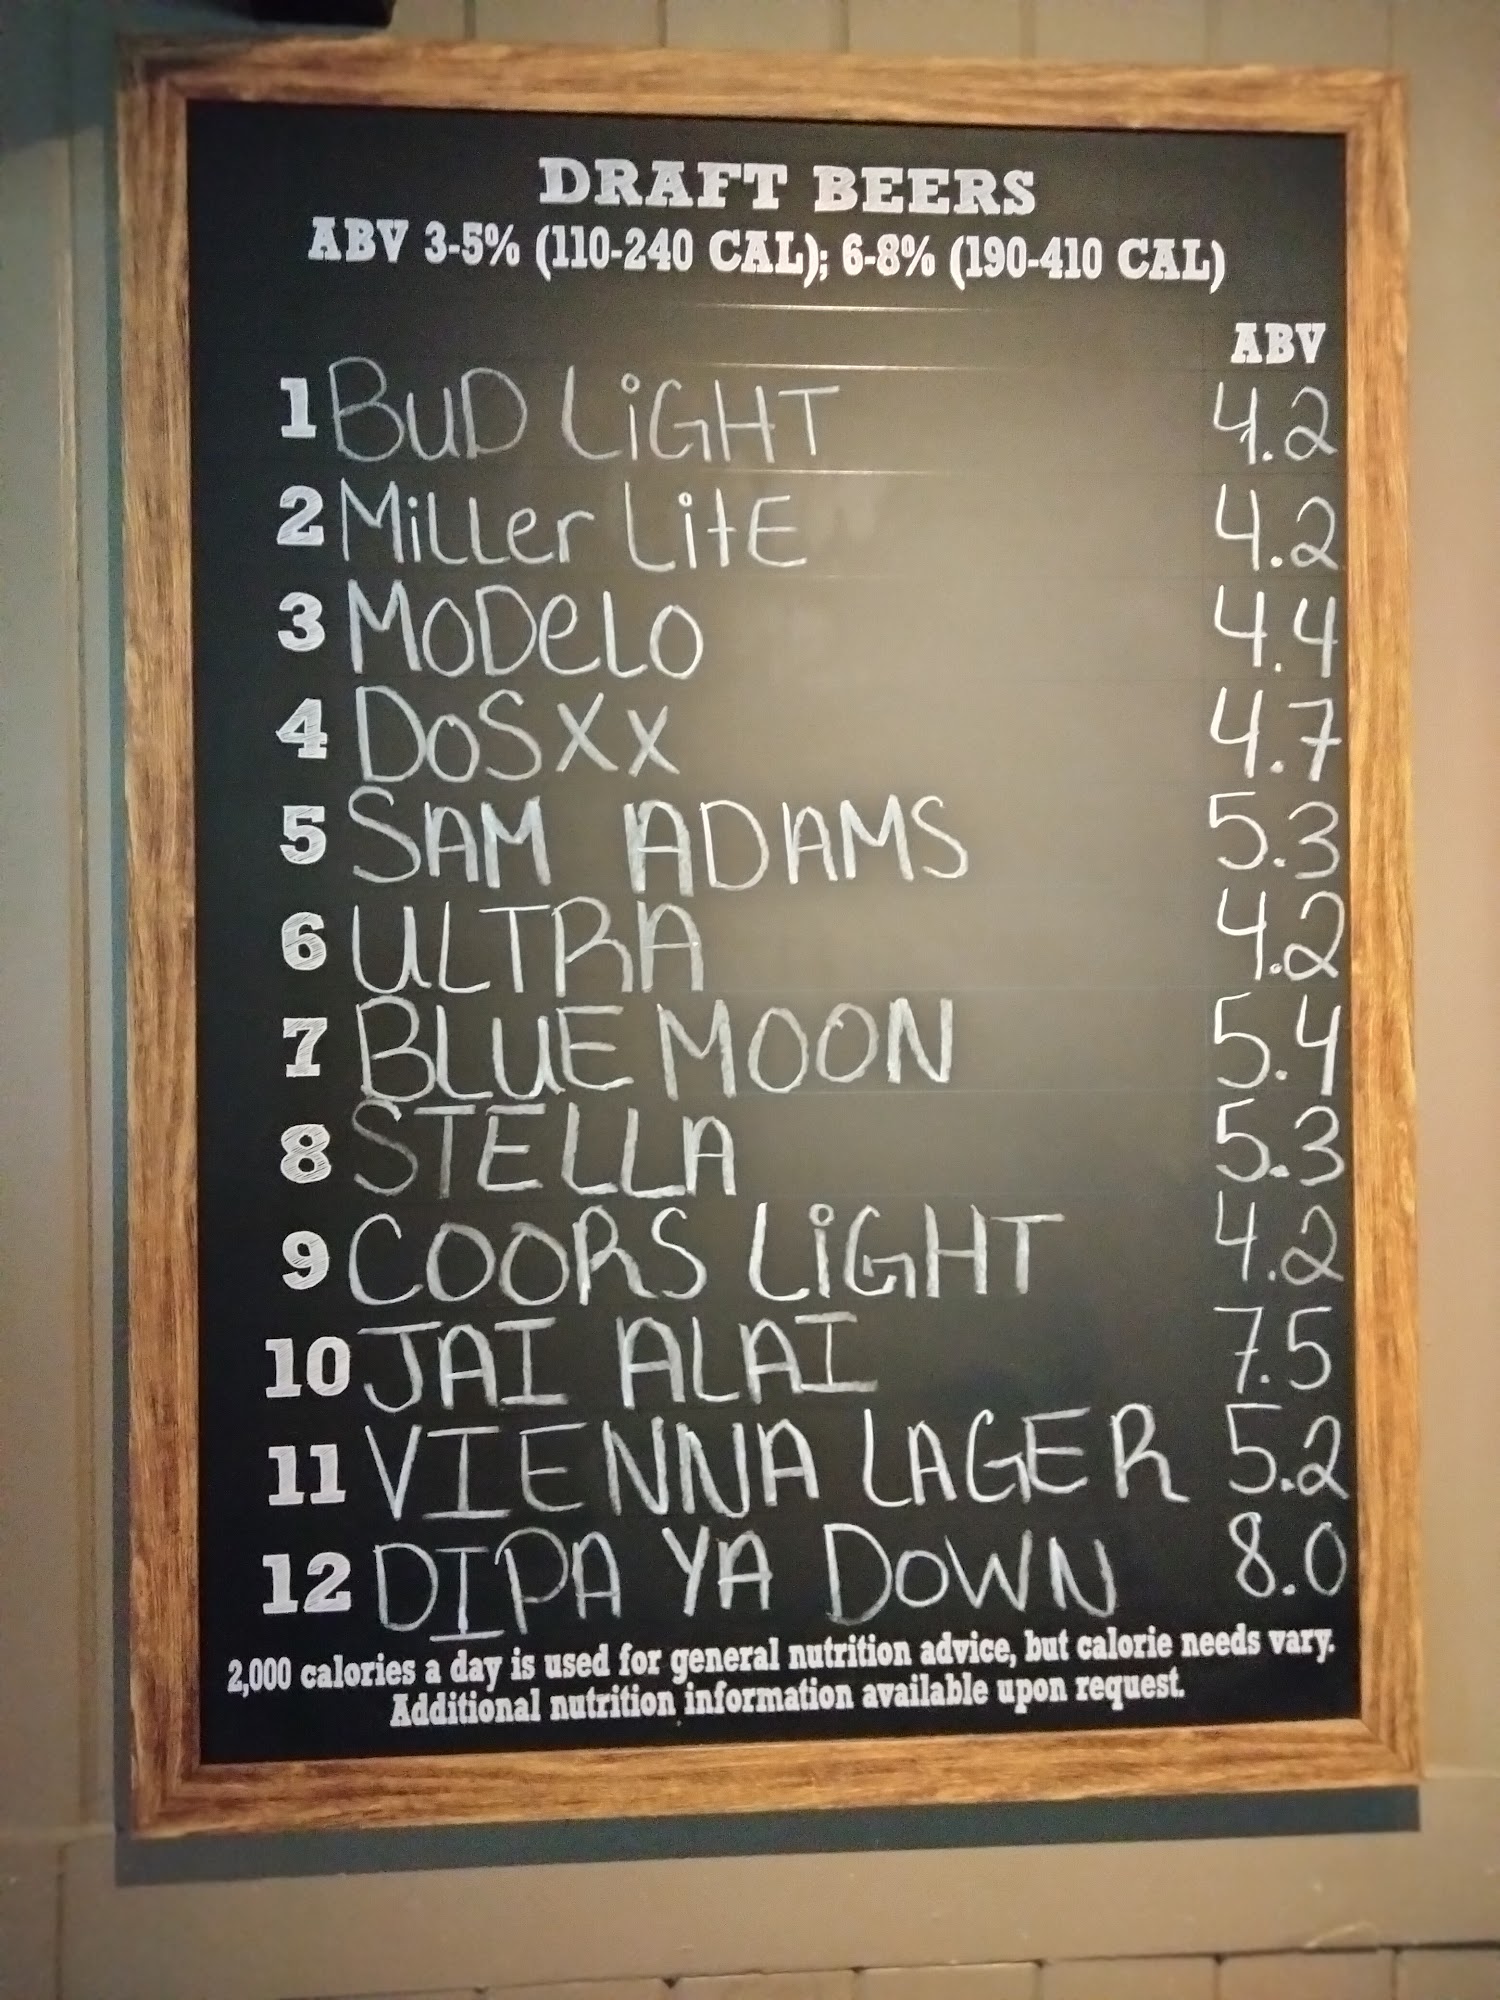 DRAFT BEERS
ABV 3-5% (110-240 CAL); 6-8% (190-410 CAL)
ABV
1 BuD LiGHT 4.2
2 MiLLer LitE 4.2
3 MoDeLo 4.4
4 DoSXx 4.7
5 SAM ADAMS 5.3
6 ULTRA 4.2
7 BLUE MOON 5.4
8 STELLA 5.3
9 COORS LiGHT 4.2
10 JAI ALAI 7.5
11 VIENNA LAGER 5.2
12 DIPA YA DOWN 8.0
2,000 calories a day is used for general nutrition advice, but calorie needs vary.
Additional nutrition information available upon request.